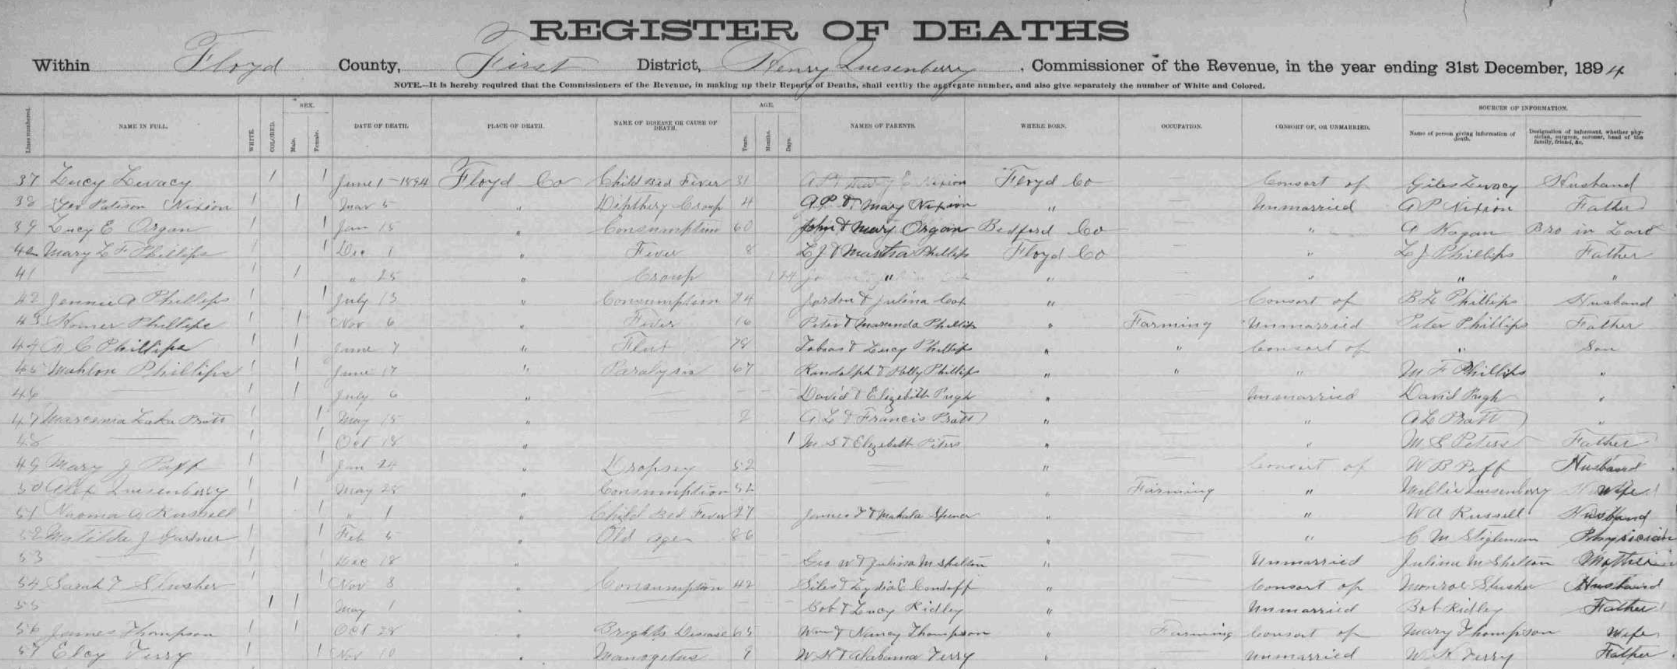 REGISTER OF DEATHS
Within Floyd County, First District, Henry Quesenberry, Commissioner of the Revenue, in the year ending 31st December, 1894
NOTE.—It is hereby required that the Commissioners of the Revenue, in making up their Reports of Deaths, shall verify the aggregate number, and also give separately the number of White and Colored.
Lines numbered. NAME IN FULL. WHITE. COLORED. SEX. Male. Female. DATE OF DEATH. PLACE OF DEATH. NAME OF DISEASE OR CAUSE OF DEATH. AGE. Years. Months. Days. NAMES OF PARENTS. WHERE BORN. OCCUPATION. CONSORT OF, OR UNMARRIED. SOURCES OF INFORMATION. Name of person giving information of death. Designation of informant, whether physician, surgeon, coroner, head of the family, friend, &c.
37 Lucy 1 1 June 1-1894 Floyd Co Child Bed Fever 31 A P & Mary E Nixion Floyd Co Consort of Giles Husband
38 Nixion 1 1 Mar 5 " Croup 4 A.P. & Mary Nixion " Unmarried A P Nixion Father
39 Lucy E Organ 1 1 Jan 15 " Consumption 60 John & Mary Organ Bedford Co " Bro in
40 Mary L F Phillips 1 1 Dec 1 " Fever 8 L J & Martha Phillips Floyd Co " L J Phillips Father
41 1 1 " 25 " Croup 1 " " " "
42 Jennie A Phillips 1 1 July 13 " Consumption 24 Jordon & Julina " Consort of B L Phillips Husband
43 Homer Phillips 1 1 Nov 6 " Fever 16 Peter & Phillips " Farming Unmarried Peter Phillips Father
44 A C Phillips 1 1 June 7 " 78 Tobias & Lucy Phillips " " Consort of " Son
45 Mahlon Phillips 1 1 June 17 " Paralysis 67 Randolph & Polly Phillips " " " M F Phillips "
46 1 1 July 6 " David & Elizabeth Pugh " Unmarried David Pugh "
47 Pratt 1 1 May 15 " 2 A L & Francis Pratt " " A L Pratt "
48 1 1 Oct 18 " 1 M S & Elizebeth Peters " " M S Peters Father
49 Mary J Poff 1 1 Jan 24 " Dropsey 52 " Consort of W B Poff Husband
50 Alex Quesenberry 1 1 May 28 " Consumption 52 " Farming " Millie Quesenberry Wife
51 Naoma A Russell 1 1 " 1 " Child Bed Fever 27 James & Mahala Spencer " " W A Russell Husband
52 Matilda J Gardner 1 1 Feb 5 " Old age 86 " " C M Stigleman Physician
53 1 1 Dec 18 " Geo W & Julina M Shelton " Unmarried Julina M Shelton Mother
54 Sarah F Slusher 1 1 Nov 3 " Consumption 42 Giles & Lydia E Conduff " Consort of Monroe Slusher Husband
55 1 1 May 1 " Bob & Lucy Ridley " Unmarried Bob Ridley Father
56 James Thompson 1 1 Oct 28 " Brights Disease 65 Wm & Nancy Thompson " Farming Consort of Mary Thompson Wife
57 Terry 1 1 Nov 10 " 9 W K & Alabama Terry " Unmarried W. K. Terry Father